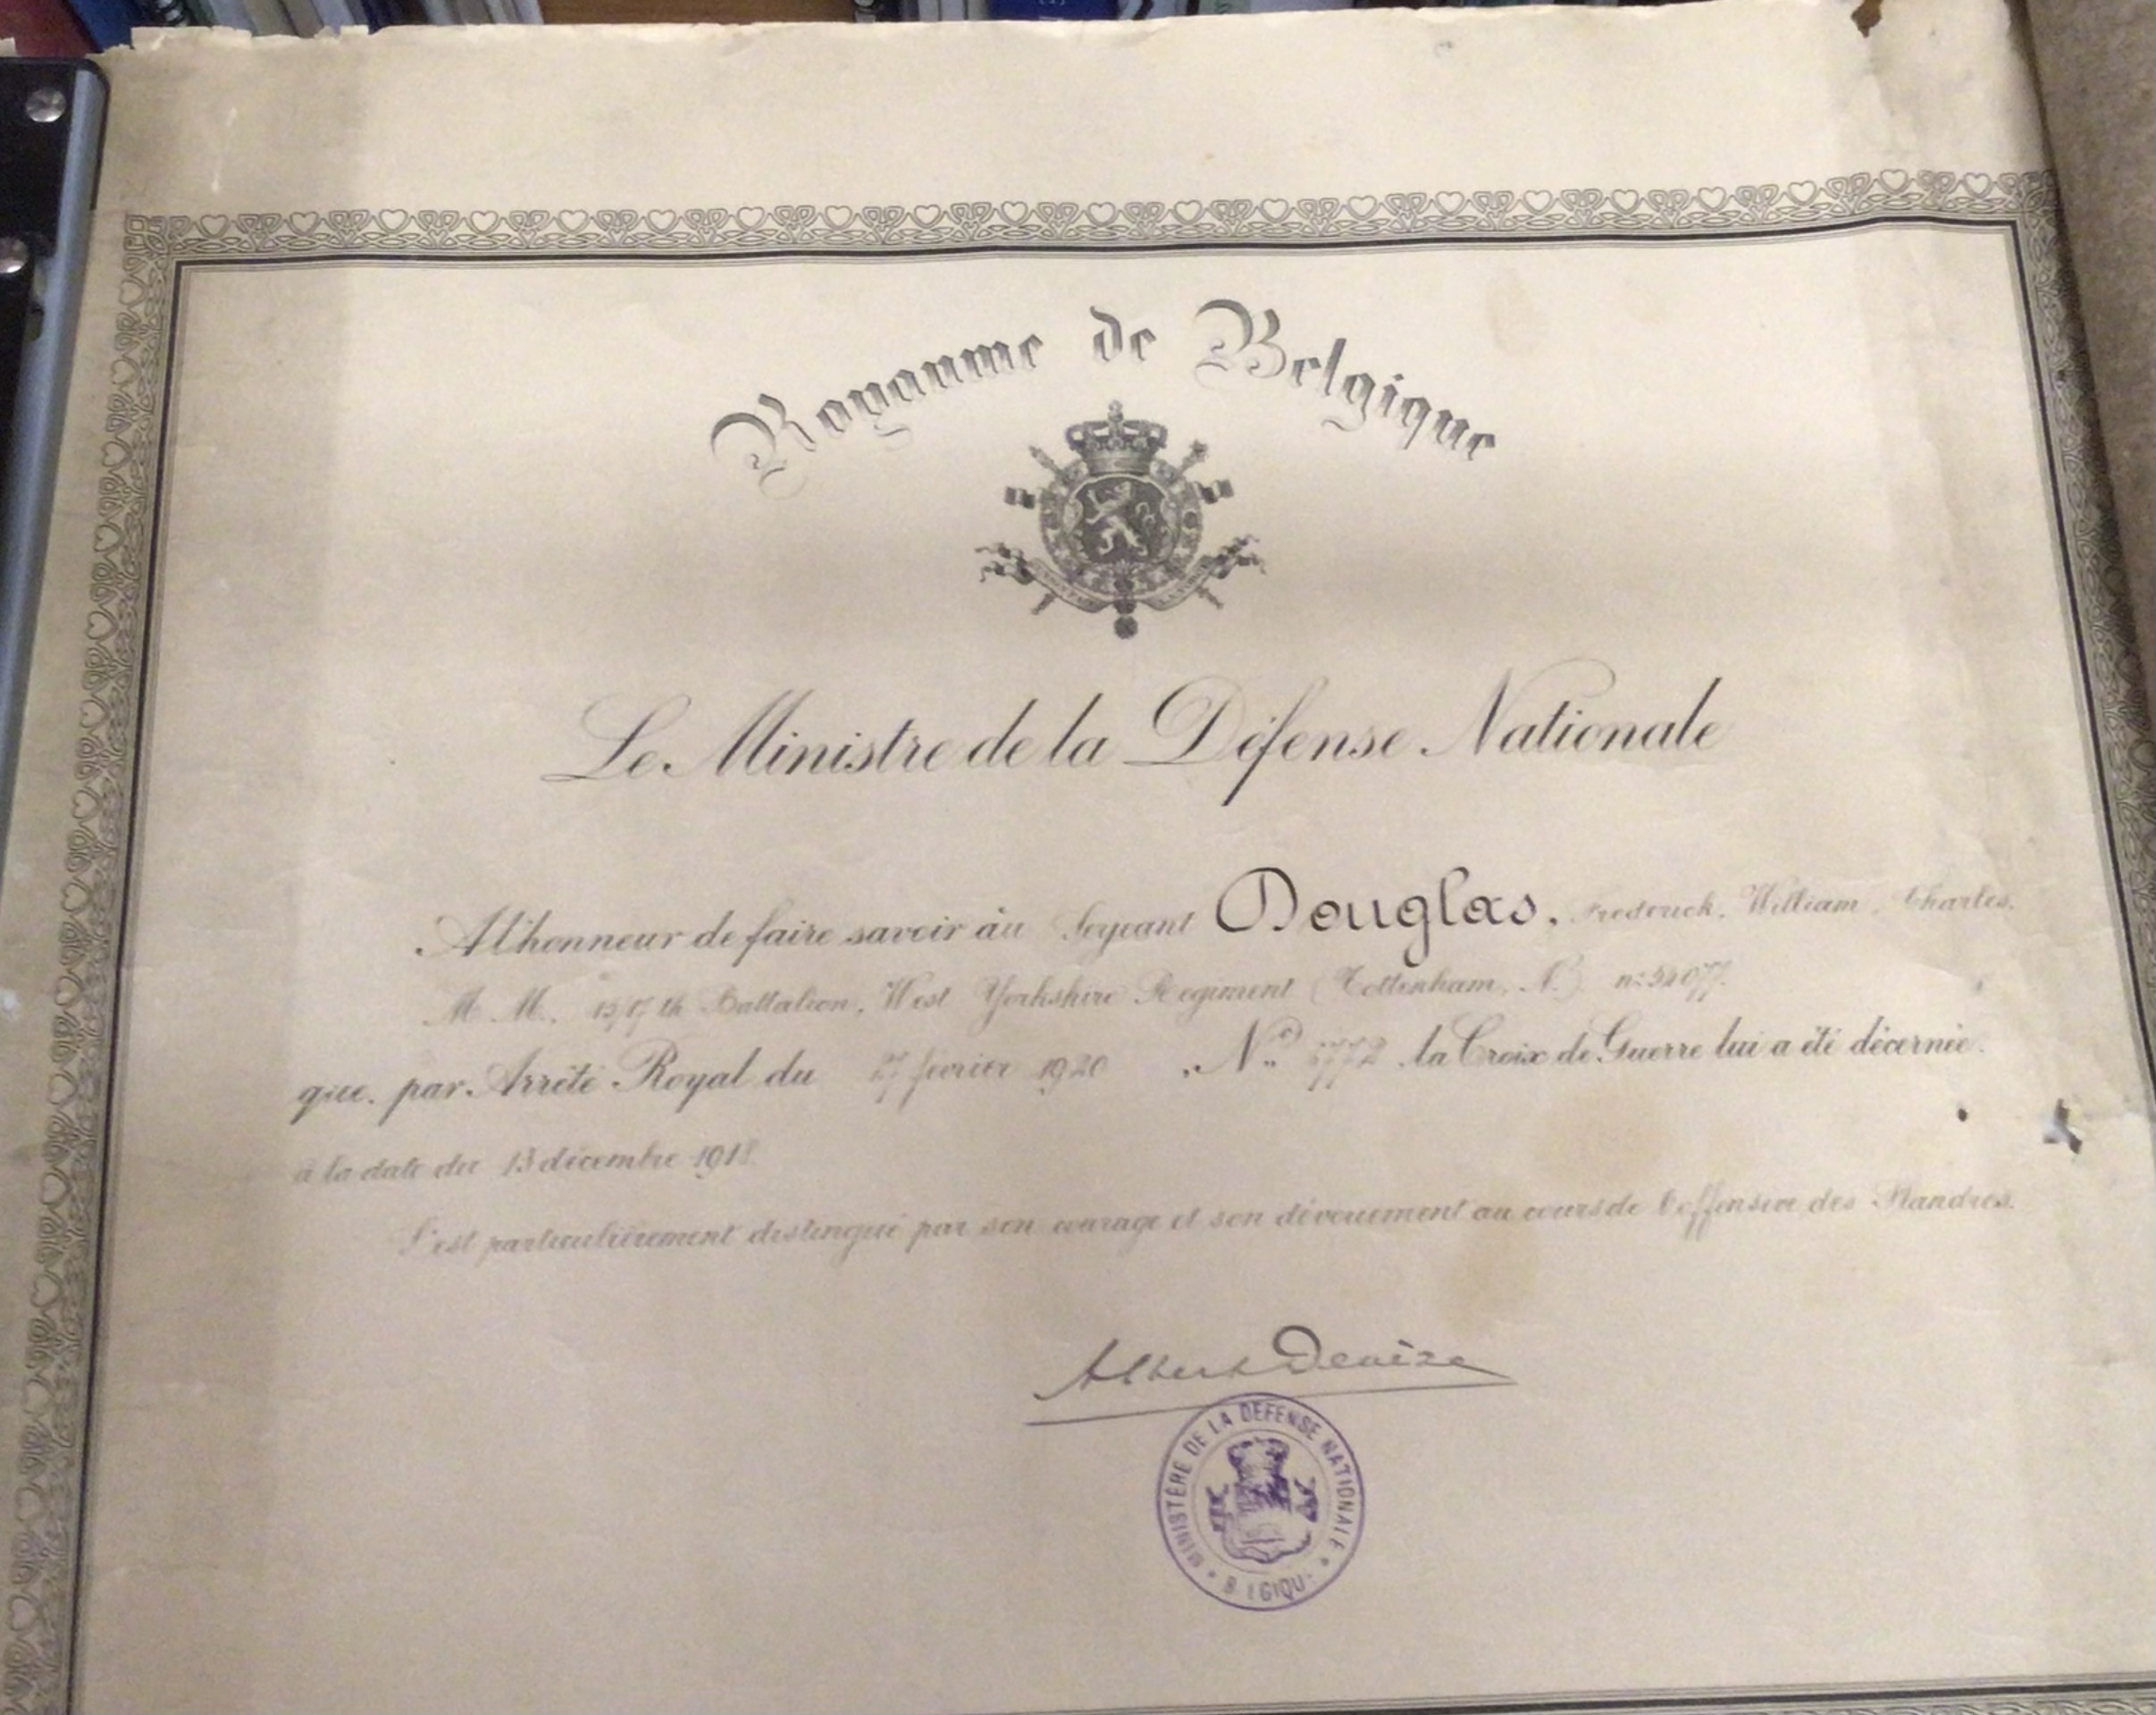 Royaume de Belgique
Le Ministre de la Défense Nationale
A l'honneur de faire savoir au Sergeant Douglas, Frederick, William, Charles,
M. M., 15/17 th Battalion, West Yorkshire Regiment (Tottenham, N.) n: 52077.
que, par Arrêté Royal du 27 février 1920, N° 5772 la Croix de Guerre lui a été décernée.
à la date du 13 décembre 1918.
S'est particulièrement distingué par son courage et son dévouement au cours de l'offensive des Flandres.
Albert Devèze
MINISTÈRE DE LA DEFENSE NATIONALE